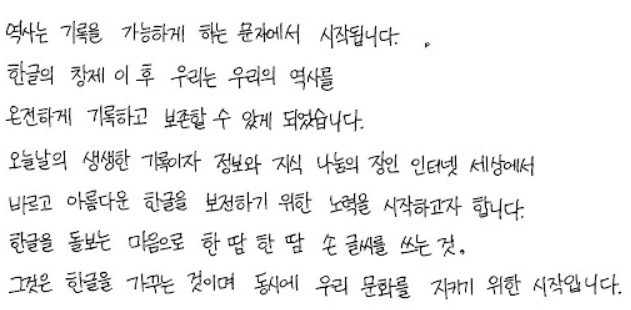 역사는 기록을 가능하게 하는 문자에서 시작됩니다.
한글의 창제 이 후 우리는 우리의 역사를
온전하게 기록하고 보존할 수 있게 되었습니다.
오늘날의 생생한 기록이자 정보와 지식 나눔의 장인 인터넷 세상에서
바르고 아름다운 한글을 보전하기 위한 노력을 시작하고자 합니다.
한글을 돌보는 마음으로 한 땀 한 땀 손 글씨를 쓰는 것.
그것은 한글을 가꾸는 것이며 동시에 우리 문화를 지키기 위한 시작입니다.